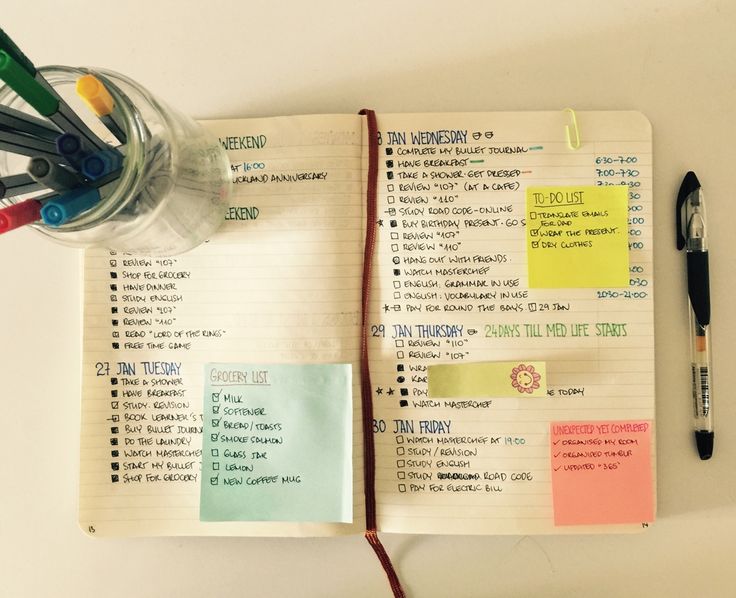 WEEKEND
AT 16:00
UCKLAND ANNIVERSARY
EKEND
REVIEW "107"
SHOP FOR GROCERY
HAVE DINNER
STUDY ENGLISH
REVIEW "107"
REVIEW "110"
READ "LORD OF THE RINGS"
FREE TIME GAME
27 JAN TUESDAY
TAKE A SHOWER
HAVE BREAKFAST
STUDY. REVISION
BOOK LEARNER'S T
BUY BULLET JOURNA
DO THE LAUNDRY
WATCH MASTERCHEF
START MY BULLET J
SHOP FOR GROCERY
GROCERY LIST
MILK
SOFTENER
BREAD/TOASTS
SMOKE SALMON
GLASS JAR
LEMON
NEW COFFEE MUG
13
8 JAN WEDNESDAY
COMPLETE MY BULLET JOURNAL
HAVE BREAKFAST 6:30-7:00
TAKE A SHOWER. GET DRESSED 7:00-7:30
REVIEW "107" (AT A CAFE)
REVIEW "110"
STUDY ROAD CODE-ONLINE
BUY BIRTHDAY PRESENT. GO S
REVIEW "107"
REVIEW "110"
HANG OUT WITH FRIENDS.
WATCH MASTERCHEF
ENGLISH: GRAMMAR IN USE
ENGLISH: VOCABULARY IN USE 20:30-21:00
PAY FOR ROUND THE BAYS. 29 JAN
TO-DO LIST
TRANSLATE EMAILS
FOR DAD
WRAP THE PRESENT.
DRY CLOTHES
29 JAN THURSDAY 24 DAYS TILL MED LIFE STARTS
REVIEW "110"
REVIEW "107"
WRA
KAR
PAY E TODAY
WATCH MASTERCHEF
30 JAN FRIDAY
WATCH MASTERCHEF AT 19:00
STUDY/REVISION
STUDY ENGLISH
STUDY ROAD CODE
PAY FOR ELECTRIC BILL
UNEXPECTED YET COMPLETED
ORGANISED MY ROOM
ORGANISED TUMBLR
UPDATED "365"
14